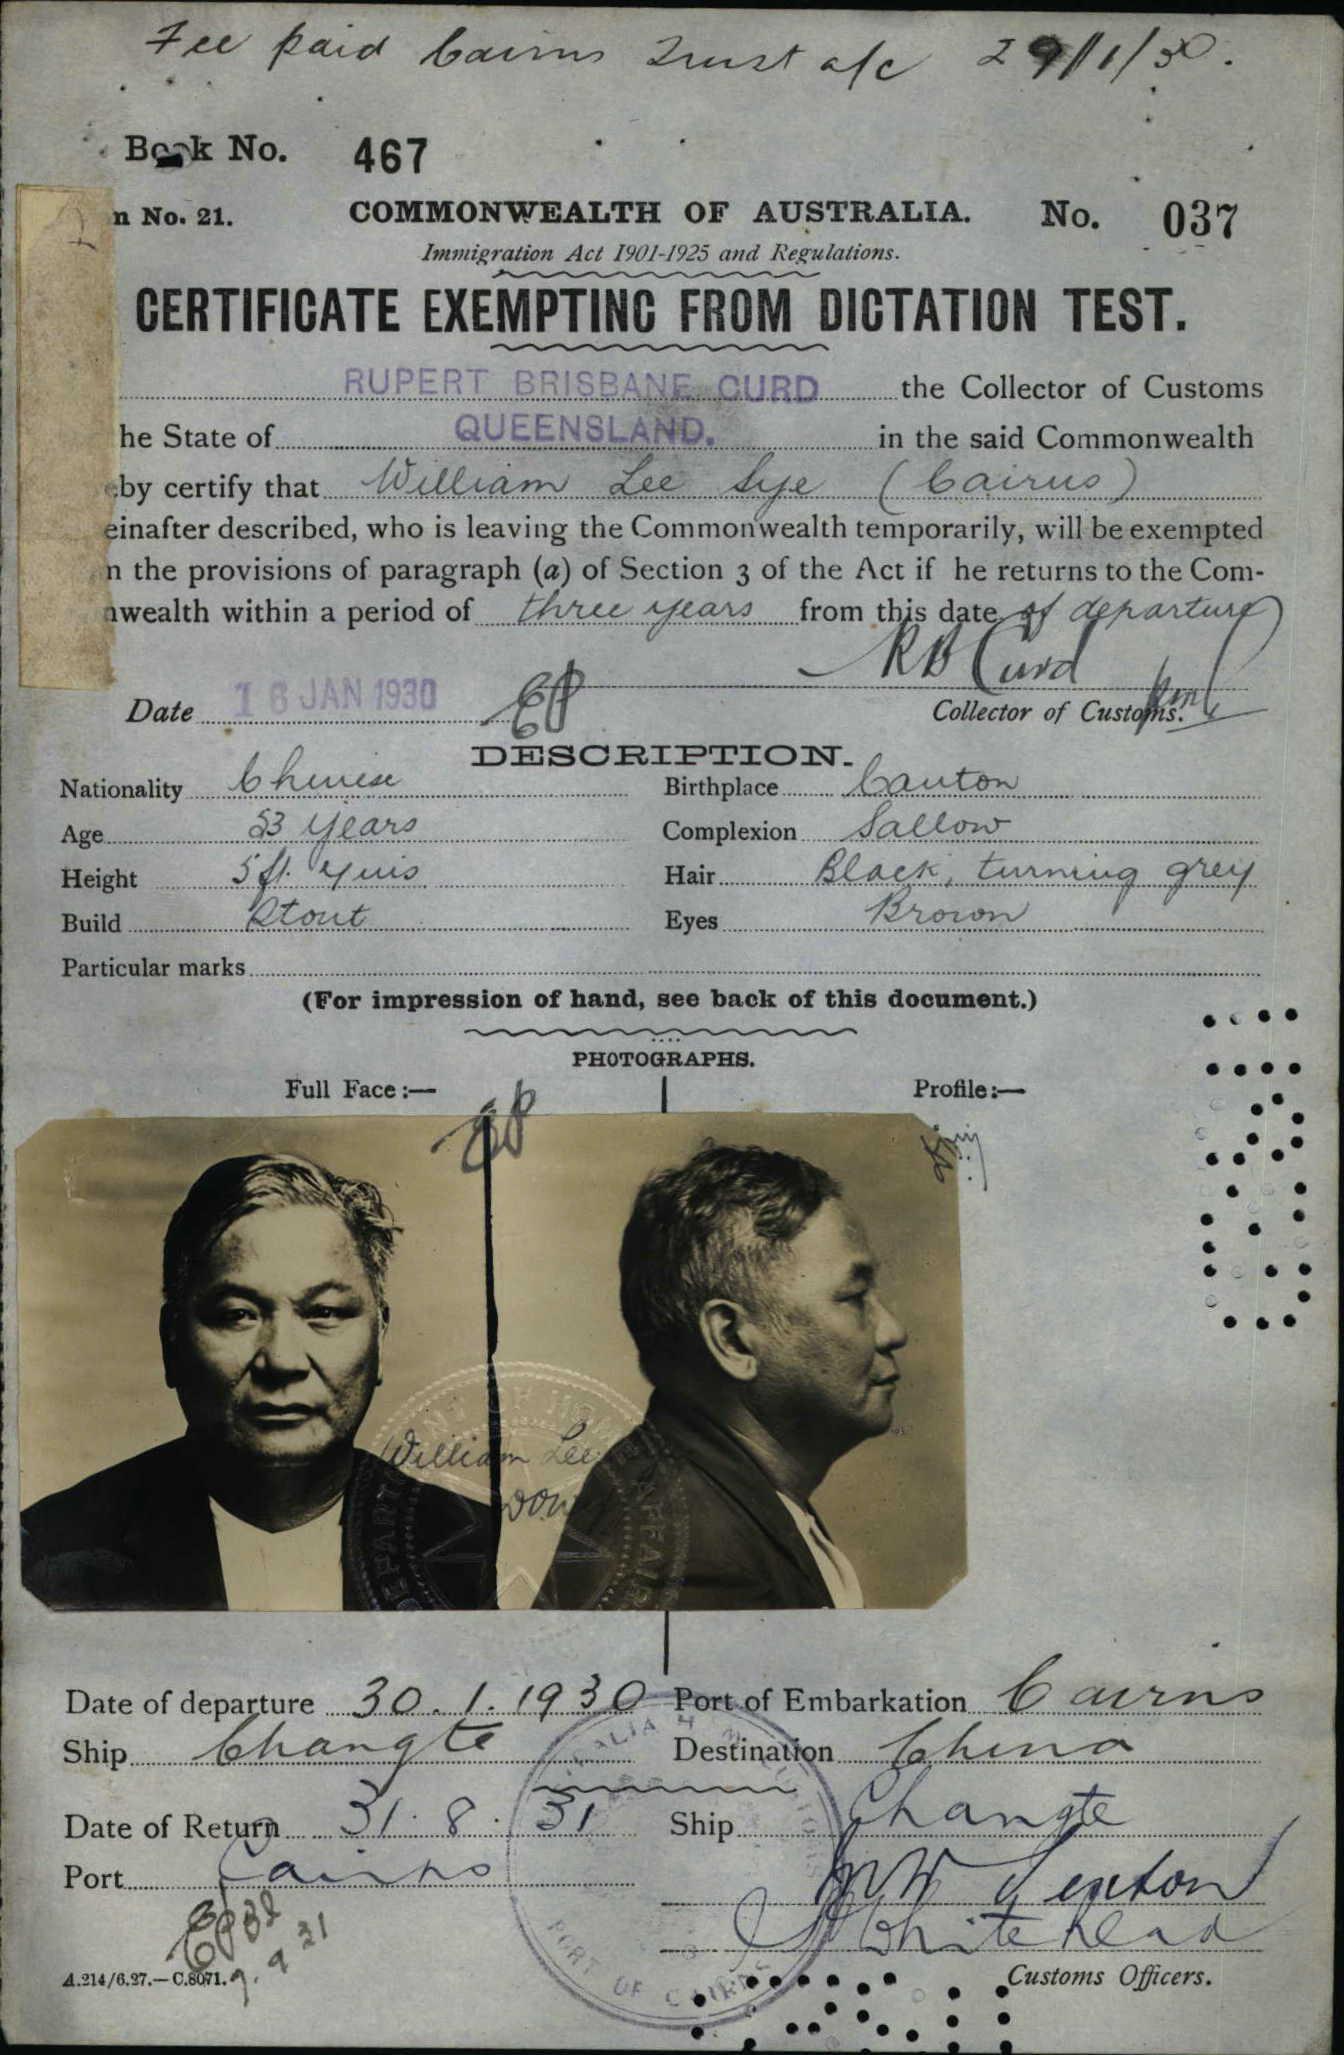 Fee paid Cairns Trust a/c 29/1/30.
Book No. 467
No. 21. COMMONWEALTH OF AUSTRALIA. No. 037
Immigration Act 1901-1925 and Regulations.
CERTIFICATE EXEMPTING FROM DICTATION TEST.
RUPERT BRISBANE CURD the Collector of Customs
he State of QUEENSLAND. in the said Commonwealth
by certify that William Lee Sye (Cairns)
einafter described, who is leaving the Commonwealth temporarily, will be exempted
the provisions of paragraph (a) of Section 3 of the Act if he returns to the Com-
wealth within a period of three years from this date of departure
R B Curd
Date 16 JAN 1930 Collector of Customs.
DESCRIPTION.
Nationality Chinese Birthplace Canton
Age 53 years Complexion Sallow
Height 5 ft. 4 ins Hair Black, turning grey
Build Stout Eyes Brown
Particular marks
(For impression of hand, see back of this document.)
PHOTOGRAPHS.
Full Face:— Profile:—
William Lee
Date of departure 30.1.1930 Port of Embarkation Cairns
Ship Changte Destination China
Date of Return 31.8.31 Ship Changte
Port Cairns
Whitehead
A.214/6.27.—C.8071. Customs Officers.
PORT OF CAIRNS